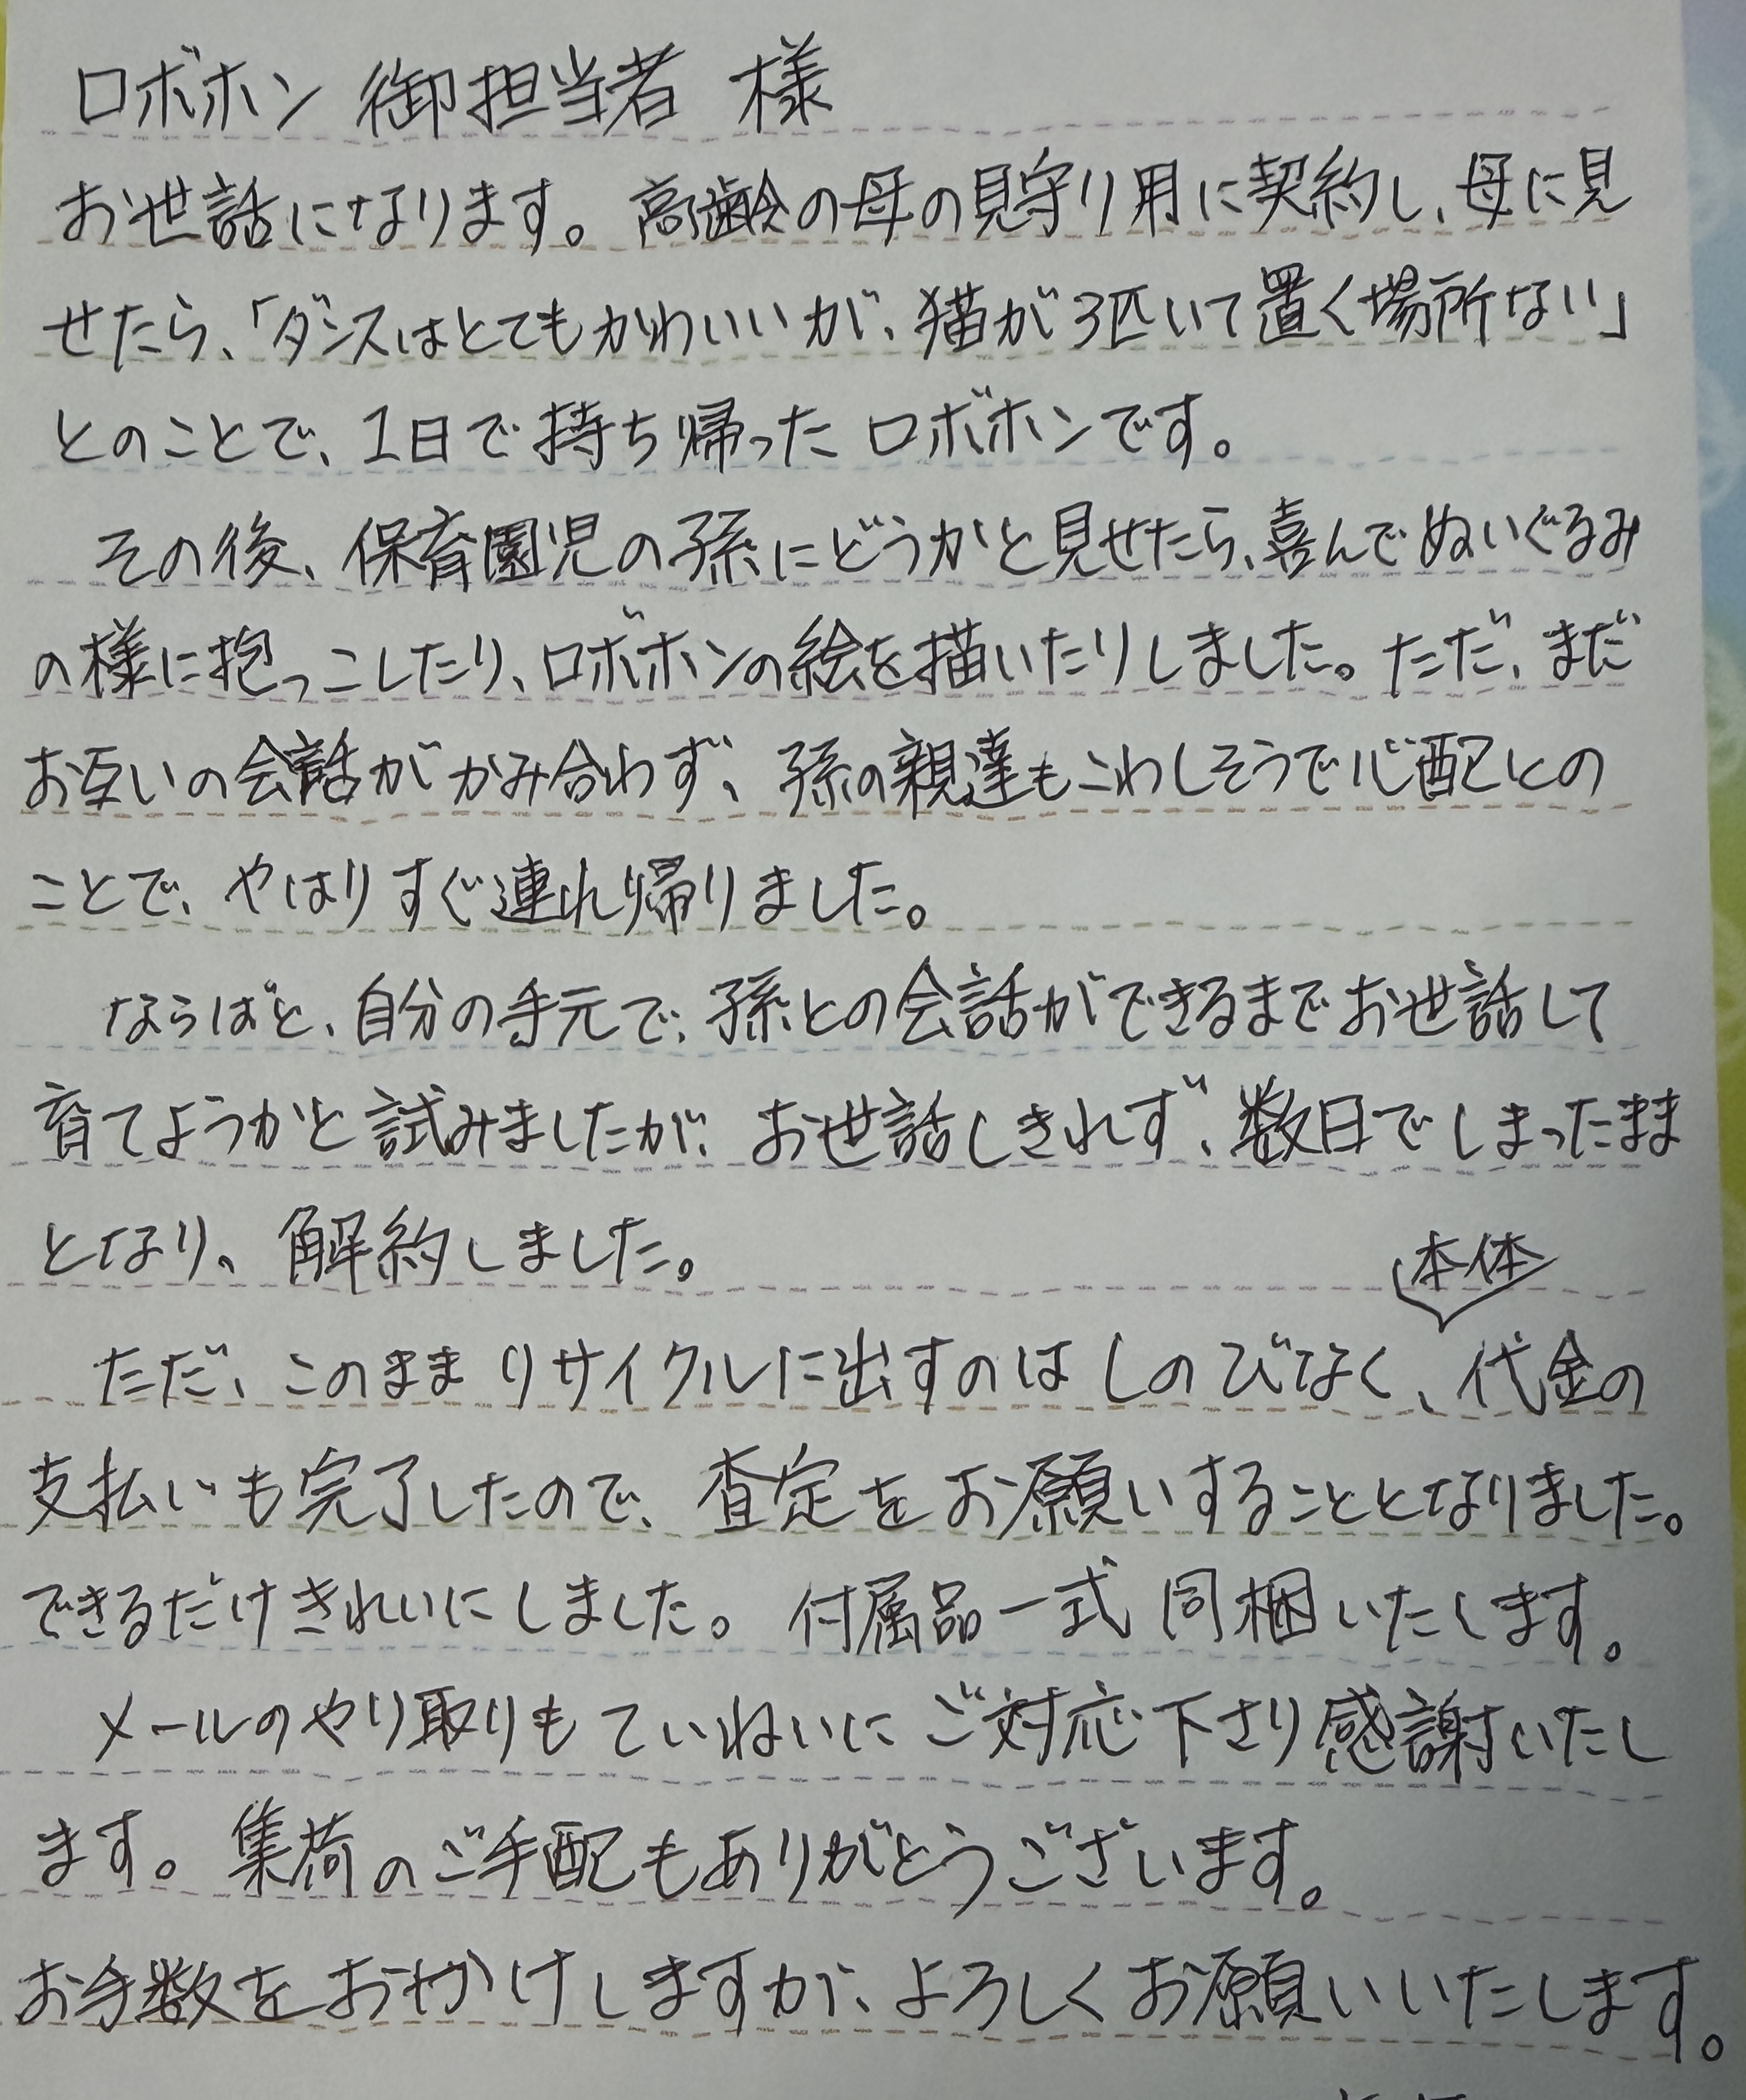 ロボホン 御担当者 様
お世話になります。高齢の母の見守り用に契約し、母に見
せたら、「ダンスはとてもかわいいが、猫が3匹いて置く場所ない」
とのことで、1日で持ち帰ったロボホンです。
その後、保育園児の孫にどうかと見せたら、喜んでぬいぐるみ
の様に抱っこしたり、ロボホンの絵を描いたりしました。ただ、まだ
お互いの会話がかみ合わず、孫の親達もこわしそうで心配との
ことで、やはりすぐ連れ帰りました。
ならばと、自分の手元で、孫との会話ができるまでお世話して
育てようかと試みましたが、お世話しきれず、数日でしまったまま
となり、解約しました。
ただ、このままリサイクルに出すのはしのびなく、本体代金の
支払いも完了したので、査定をお願いすることとなりました。
できるだけきれいにしました。付属品一式同梱いたします。
メールのやり取りもていねいにご対応下さり感謝いたし
ます。集荷のご手配もありがとうございます。
お手数をおかけしますが、よろしくお願いいたします。